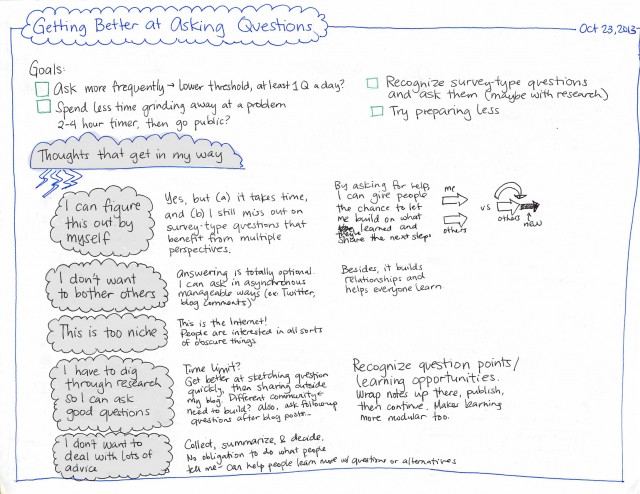 Getting Better at Asking Questions
Oct 23, 2013
Goals:
Ask more frequently → lower threshold, at least 1 Q a day?
Spend less time grinding away at a problem
2-4 hour timer, then go public?
Recognize survey-type questions
and ask them (maybe with research)
Try preparing less
Thoughts that get in my way
I can figure
this out by
myself
Yes, but (a) it takes time,
and (b) I still miss out on
survey-type questions that
benefit from multiple
perspectives.
By asking for help,
I can give people
the chance to let
me build on what
learned and
share the next steps
me
others
vs
others
new
I don't want
to bother others
Answering is totally optional.
I can ask in asynchronous
manageable ways (ex: Twitter,
blog comments)
Besides, it builds
relationships and
helps everyone learn
This is too niche
This is the Internet!
People are interested in all sorts
of obscure things
I have to dig
through research
so I can ask
good questions
Time limit?
Get better at sketching question
quickly, then sharing outside
my blog. Different community-
need to build? Also, ask followup
questions after blog posts...
Recognize question points/
learning opportunities.
Wrap notes up there, publish,
then continue. Makes learning
more modular too.
I don't want to
deal with lots of
advice
Collect, summarize, & decide.
No obligation to do what people
tell me - Can help people learn more w/ questions or alternatives